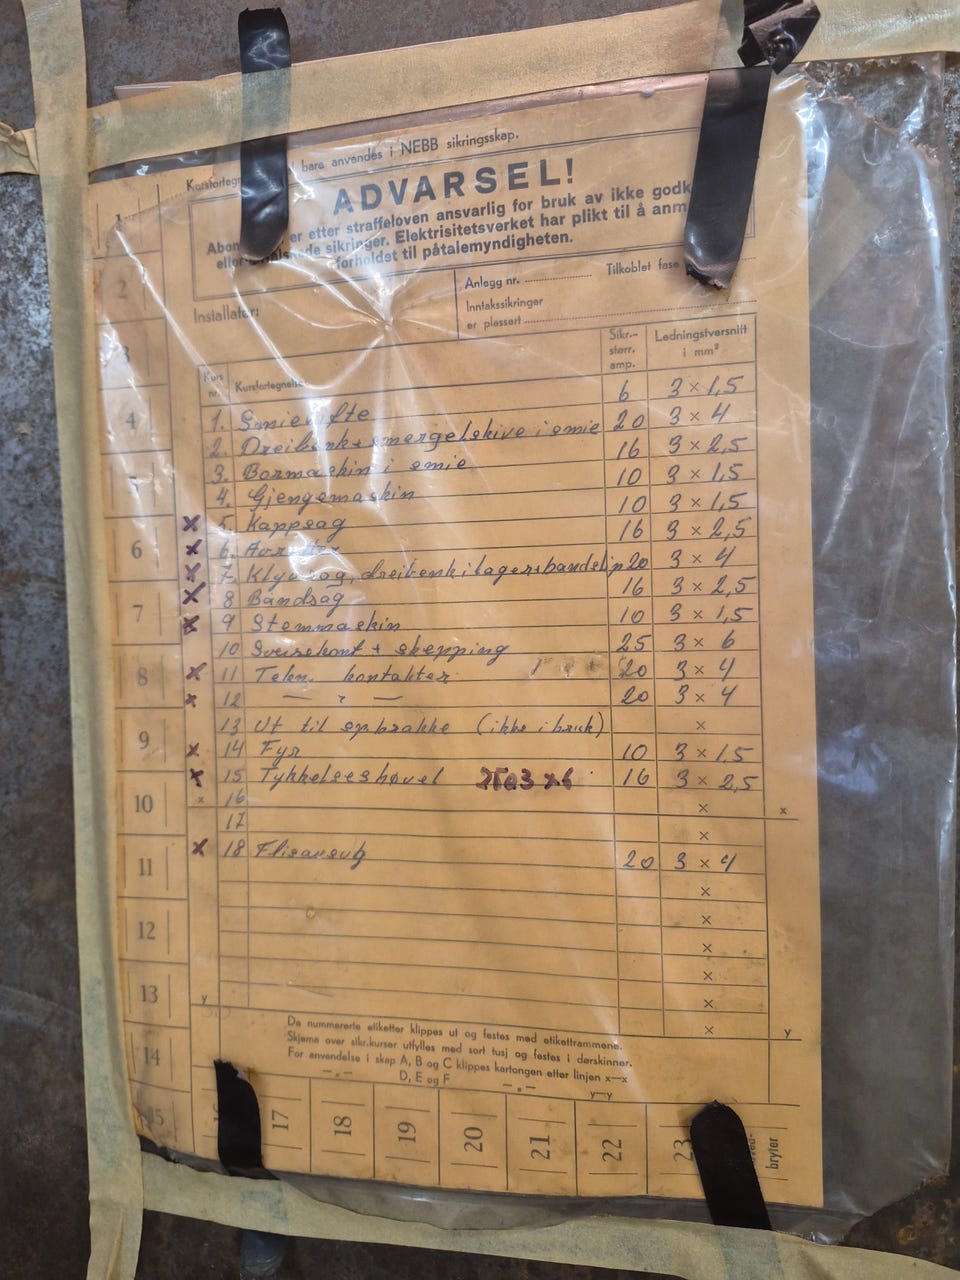 Kursfortegn bare anvendes i NEBB sikringsskap.
ADVARSEL!
Abon er etter straffeloven ansvarlig for bruk av ikke godk
sikringer. Elektrisitetsverket har plikt til å anm
forholdet til påtalemyndigheten.
Installatør:
Anlegg nr. Tilkoblet fase
Inntakssikringer
er plassert
Kurs nr. Kursfortegnelse Sikr.- størr. amp. Ledningstverrsnitt i mm²
1. 6 3 × 1,5
2. Dreibenk + smergelskive i smie 20 3 × 4
3. Bormaskin i smie 16 3 × 2,5
4. Gjengemaskin 10 3 × 1,5
x 5. Kappsag 10 3 × 1,5
x 6. 16 3 × 2,5
x 7. dreibenk i lager + 20 3 × 4
x 8 Bandsag 16 3 × 2,5
x 9 Stemmaskin 10 3 × 1,5
10 + 25 3 × 6
x 11 Tekn. kontakter 20 3 × 4
x 12 — " — 20 3 × 4
13 Ut til (ikke i bruk) ×
x 14 Fyr 10 3 × 1,5
x 15 Tykkelseshøvel 16 3 × 2,5
x 16 × x
17 ×
x 18 Flisavsug 20 3 × 4
×
×
×
×
×
y × y
De nummererte etiketter klippes ut og festes med etikettrammene.
Skjema over sikr.kurser utfylles med sort tusj og festes i dørskinner.
For anvendelse i skap A, B og C klippes kartongen etter linjen x—x
—.— D, E og F —.— y—y
1
2
3
4
5
6
7
8
9
10
11
12
13
14
15
16 17 18 19 20 21 22 23
bryter